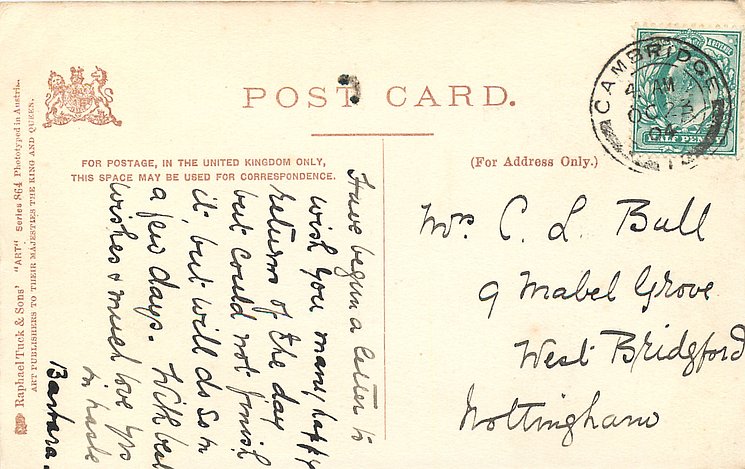 POST CARD.
FOR POSTAGE, IN THE UNITED KINGDOM ONLY,
THIS SPACE MAY BE USED FOR CORRESPONDENCE.
(For Address Only.)
CAMBRIDGE
4 AM
OC 23
04
HALF PENNY
Mrs C. L. Bull
9 Mabel Grove
West Bridgford
Nottingham
Have begun a letter to
wish you many happy
returns of the day
but could not finish
it, but will do so in
a few days. With best
wishes & much love yrs
in haste
Barbara.
Raphael Tuck & Sons' "ART" Series 864 Phototyped in Austria.
ART PUBLISHERS TO THEIR MAJESTIES THE KING AND QUEEN.